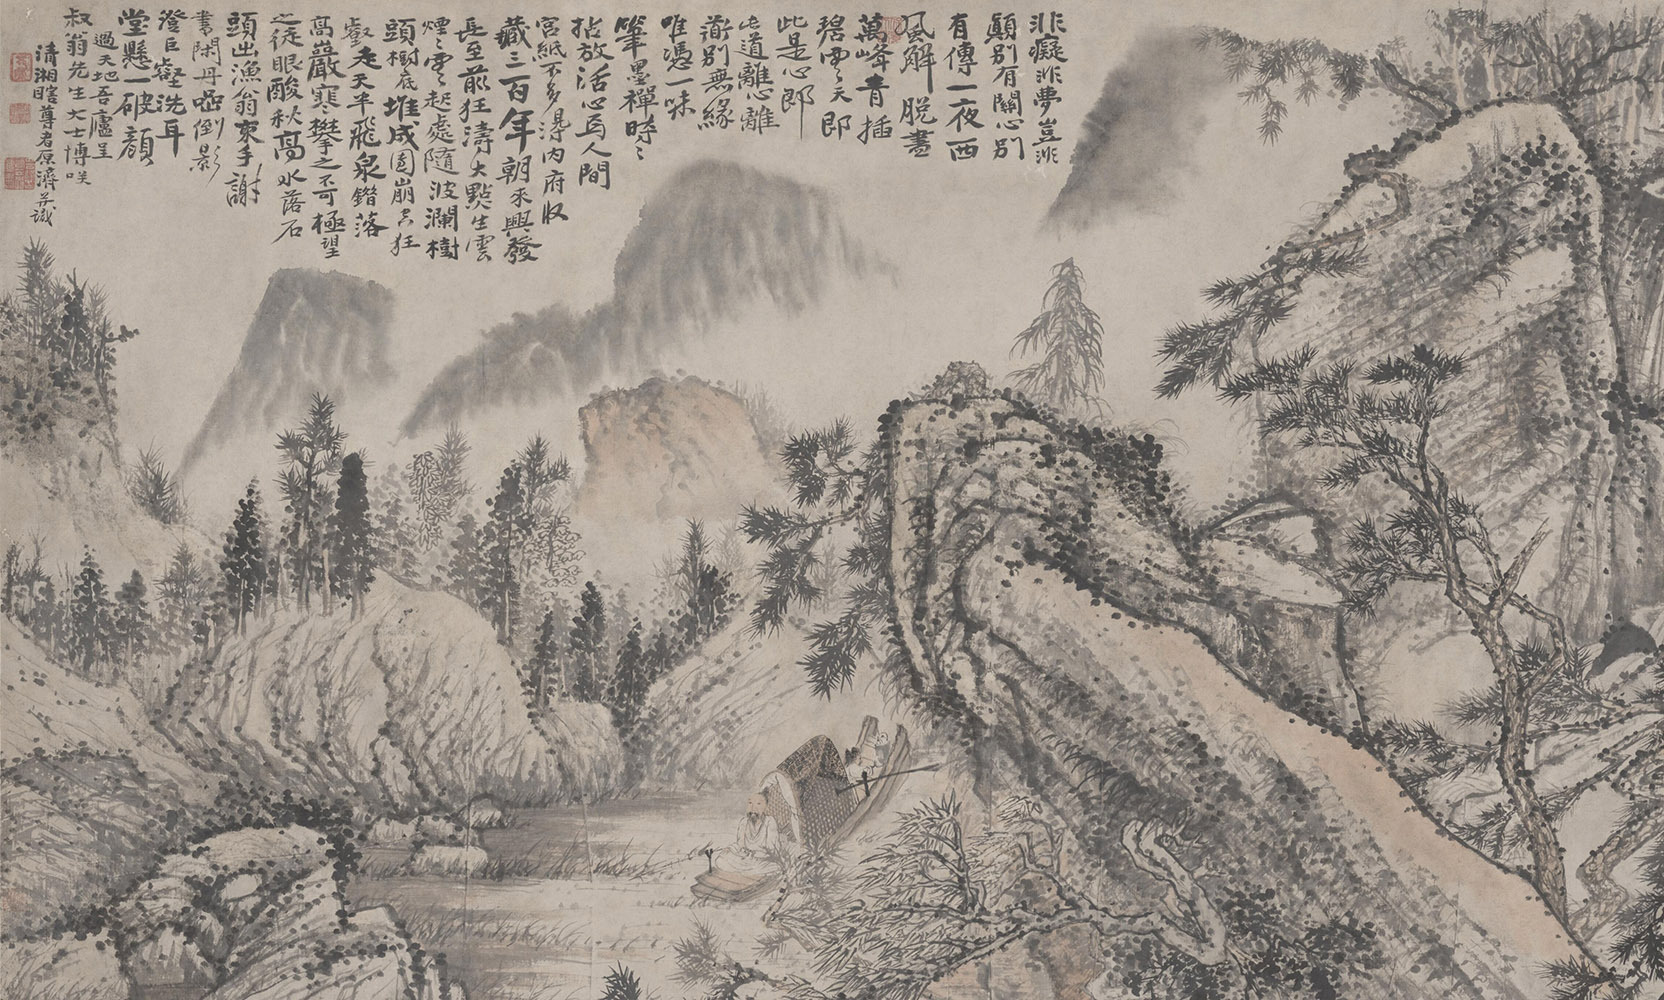 非癡非夢豈非
顛別有關心別
有傳一夜西
風解脫盡
萬峰青插
碧雲天即
此是心即
此道離心離
道別無緣
唯憑一味
筆墨禪時〻
拈放活心焉人間
宮紙不多得內府收
藏三百年朝來興發
長至前狂濤大點生雲
煙〻雲〻起處隨波瀾樹
頭樹底堆成團崩空狂
壑走天半飛泉錯落
高巖窠攀之不可極望
之徒眼酸秋高水落石
頭出漁翁束手謝
書閑丹 倒影
澄巨壑洗耳
堂懸一破顏
過天地吾廬呈
叔翁先生大士博咲
清湘瞎尊者原濟并識